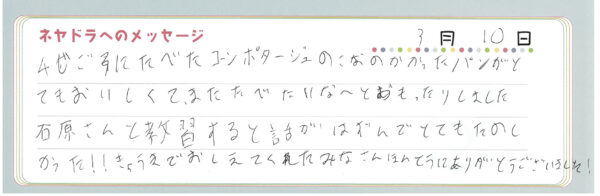 ネヤドラへのメッセージ 3月 10日
んぜごすにたべたコーンポタージュのこなのかかったパンがと
てもおいしくて、またたべたいなーとおもったりしました
石原さんと教習すると話がはずんでとてもたのし
かった!!きょうまでおしえてくれたみなさんほんとうにありがとうございました!